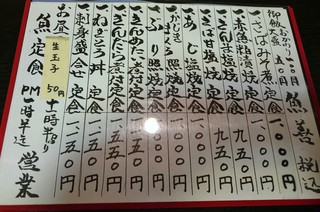 魚善 税込
御飯大盛 五〇円
おかわり 一〇〇円
一、さばみそ煮定食 一、〇〇〇円
一、赤魚粕漬焼定食 九五〇円
一、さんま塩焼定食 九五〇円
一、さけ甘塩焼定食 一、〇〇〇円
一、あじ塩焼定食 一、〇〇〇円
一、かじきまぐろ照焼定食 一、〇〇〇円
一、ぶり照焼定食 一、〇〇〇円
一、きんめだい煮付定食 一、五五〇円
一、ぎんだら煮付定食 一、五五〇円
一、ねぎとろ丼定食 一、一〇〇円
一、刺身盛合せ定食 一、二五〇円
生玉子 50円
お昼 十一時半より
魚定食 PM一時半迄 営業